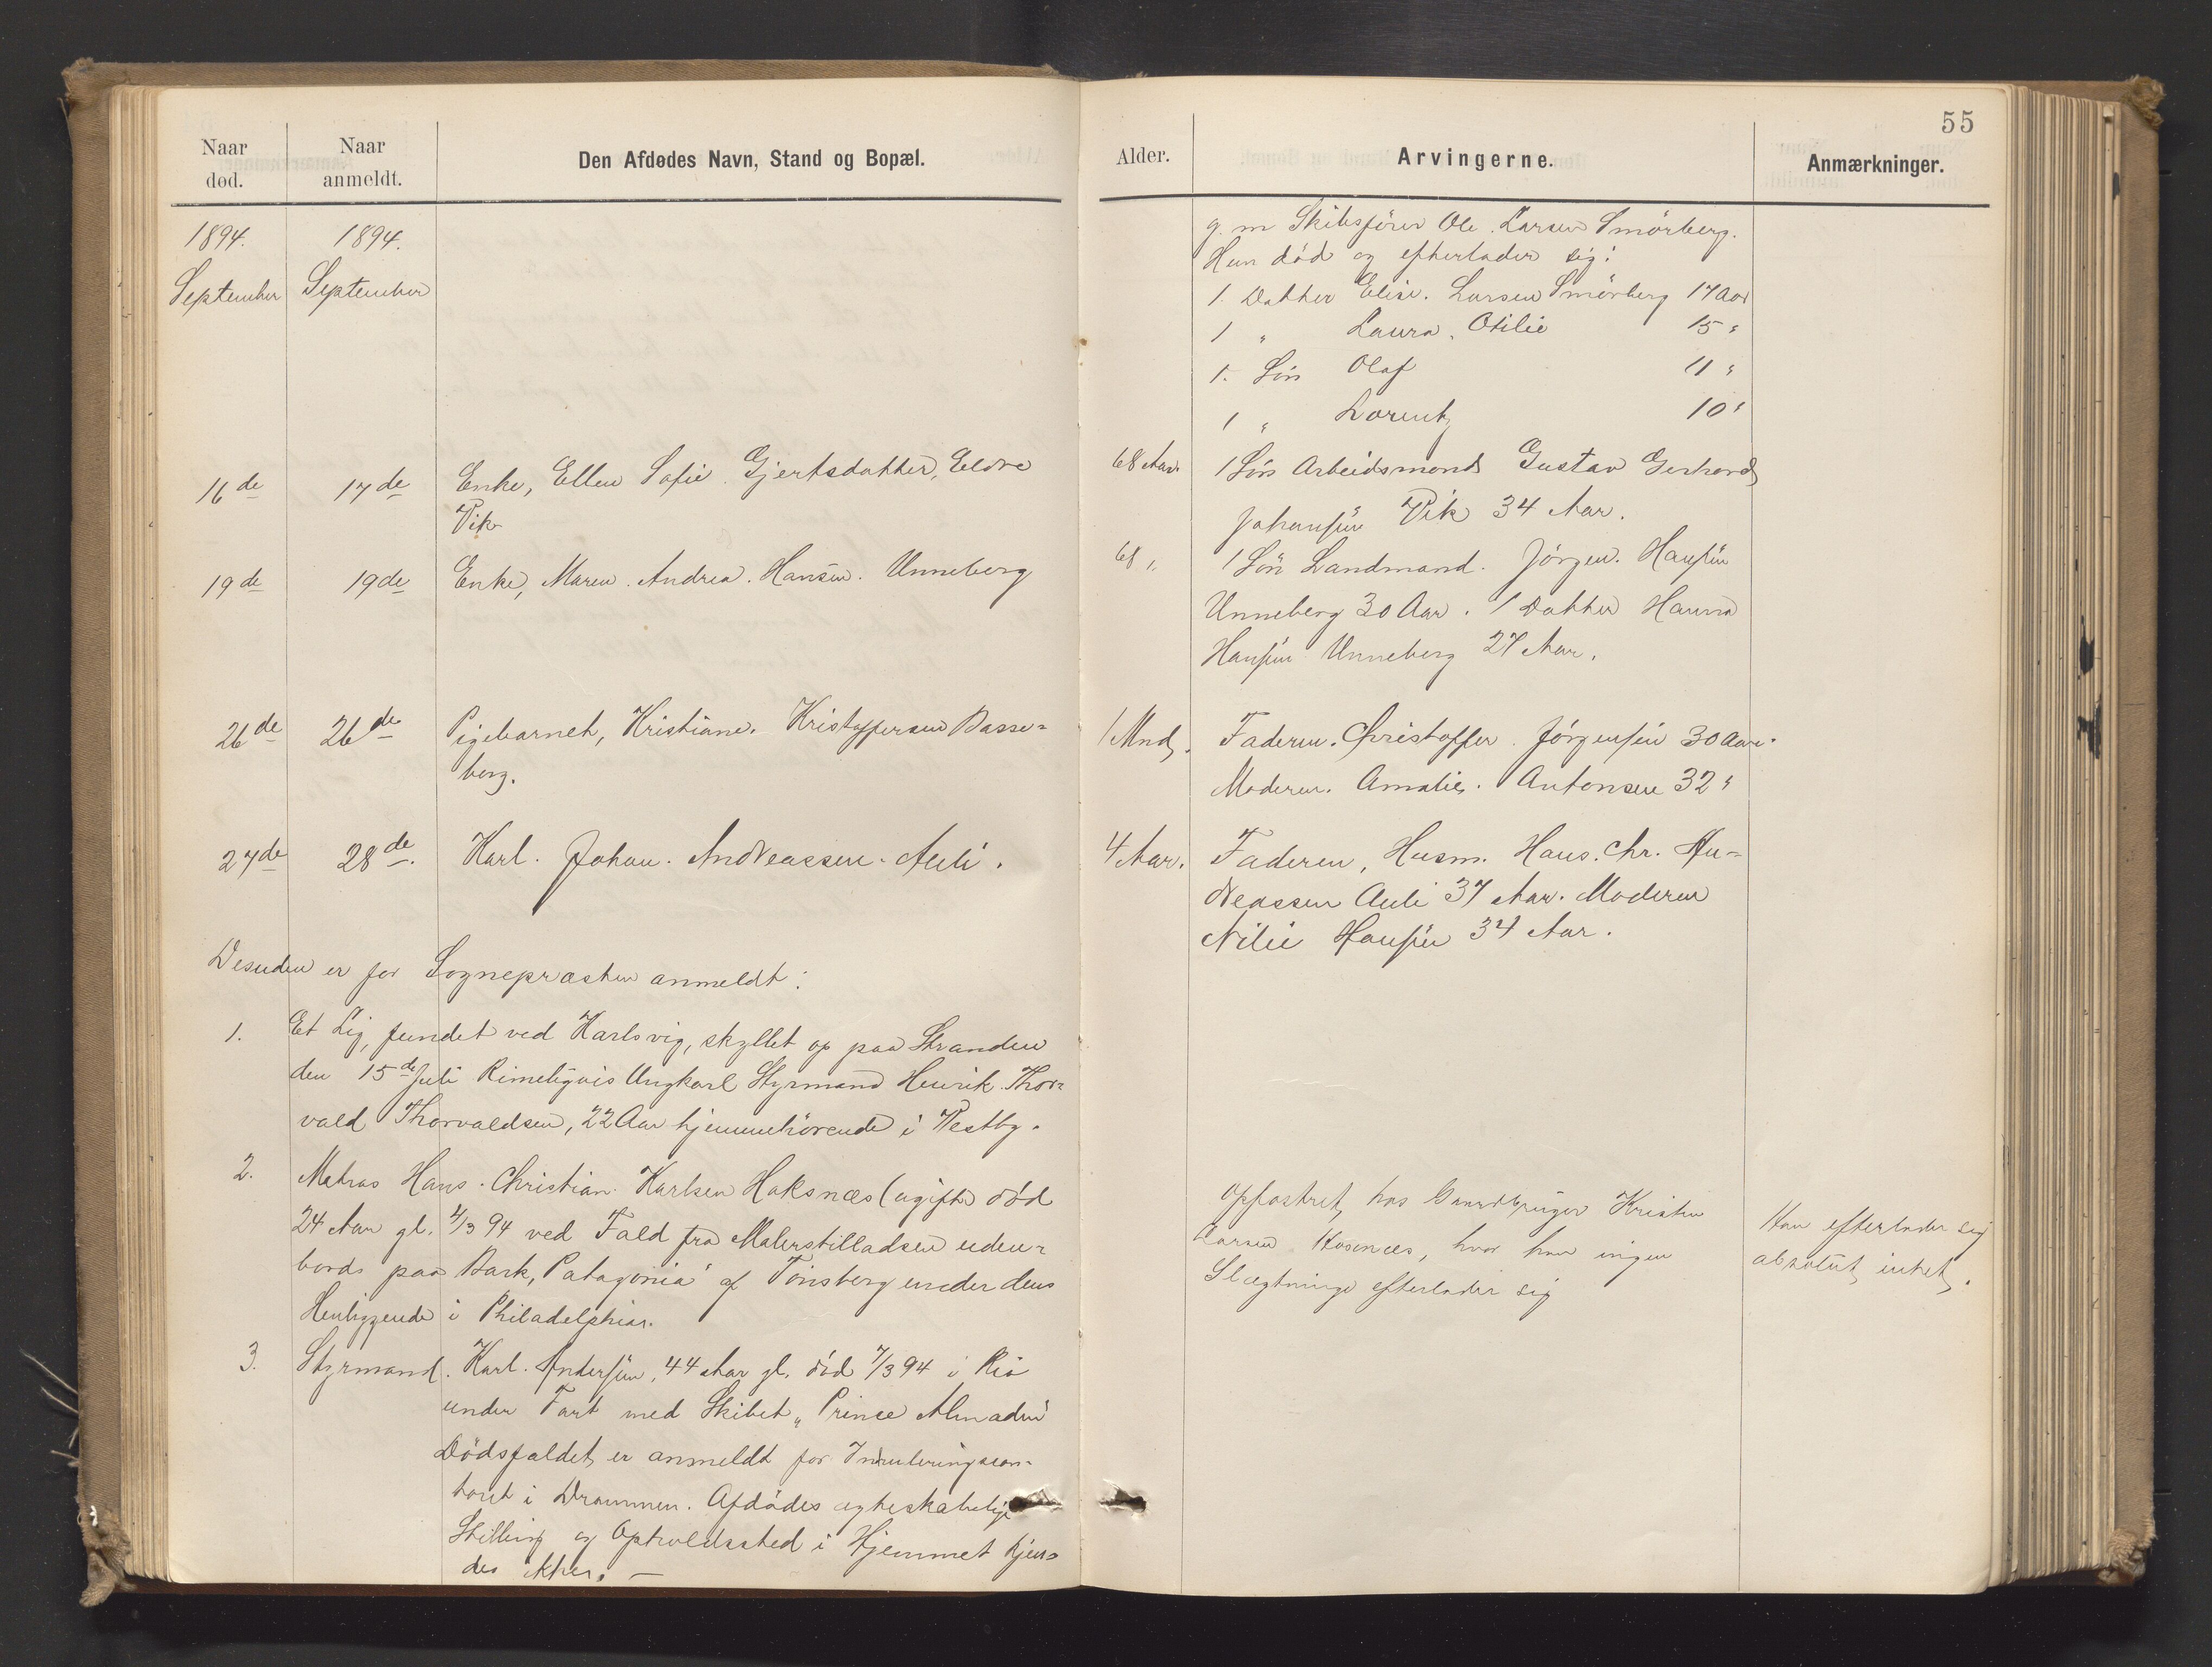 Naar
død.
Naar
anmeldt.
Den Afdødes Navn, Stand og Bopæl.
1894.
September
1894.
September
16de 17de Enke, Ellen Sofie Gjertsdatter, Eldre
Vik
19de 19de Enke, Maren. Andrea. Hansen. Unneberg
26de 26de Pigebarnet, Kristiane. Kristoffersen Basse-
berg.
27de 28de. Karl. Johan. Andreassen. Auli.
Desuden er for Sognepræsten anmeldt:
1. Et Lig, fundet ved Karlsvig, skyllet op paa Stranden
den 15de Juli Rimeligvis Ungkarl Styrmand Henrik Thor-
vald Thorvaldsen, 22 Aar hjemmehörende i Vestby.
2. Matros Hans. Christian. Karlsen Haksnæs (ugift) död
24 Aar gl. 4/3 94 ved Fald fra Malerstilladsen uden-
bords paa Bark, "Patagonia" af Tönsberg under dens
Henliggende i Philadelphia.
3. Styrmand. Karl. Andersen, 44 Aar gl. död 7/3 94 i Rio
under Fart med Skibet "Prince Almadin"
Dödsfaldet er anmeldt for Inrulleringscon-
toret i Drammen. Afdödes ægteskabelige
Stilling og Opholdssted i Hjemmet kjen-
des ikke. —
55
Alder.
Arvingerne.
Anmærkninger.
g. m Skibsförer Ole. Larsen Smörberg.
Hun död og efterlader sig:
1. Datter Elise. Larsen Smörberg 17 Aar
1 " Laura. Otilie 15 "
1. Sön Olaf 11 "
1 " Lorentz 10 "
68 Aar 1 Sön Arbeidsmand Gustav Gerhard
Johansen Vik 34 Aar.
68 " 1 Sön Landmand. Jörgen. Hansen
Unneberg 30 Aar. 1 Datter Hanna
Hansen Unneberg 27 Aar.
1 Mnd. Faderen. Christoffer. Jörgensen 30 Aar.
Moderen. Amalie. Antonsen 32 "
4 Aar. Faderen, Husm. Hans. Chr. An-
dreassen Auli 37 Aar. Moderen
Nilie Hansen 34 Aar.
Opfostret, hos Gaardbruger Kristen
Larsen Haksnæs, hvor han ingen
Slægtninge efterlader sig
Han efterlader sig
absolut intet.